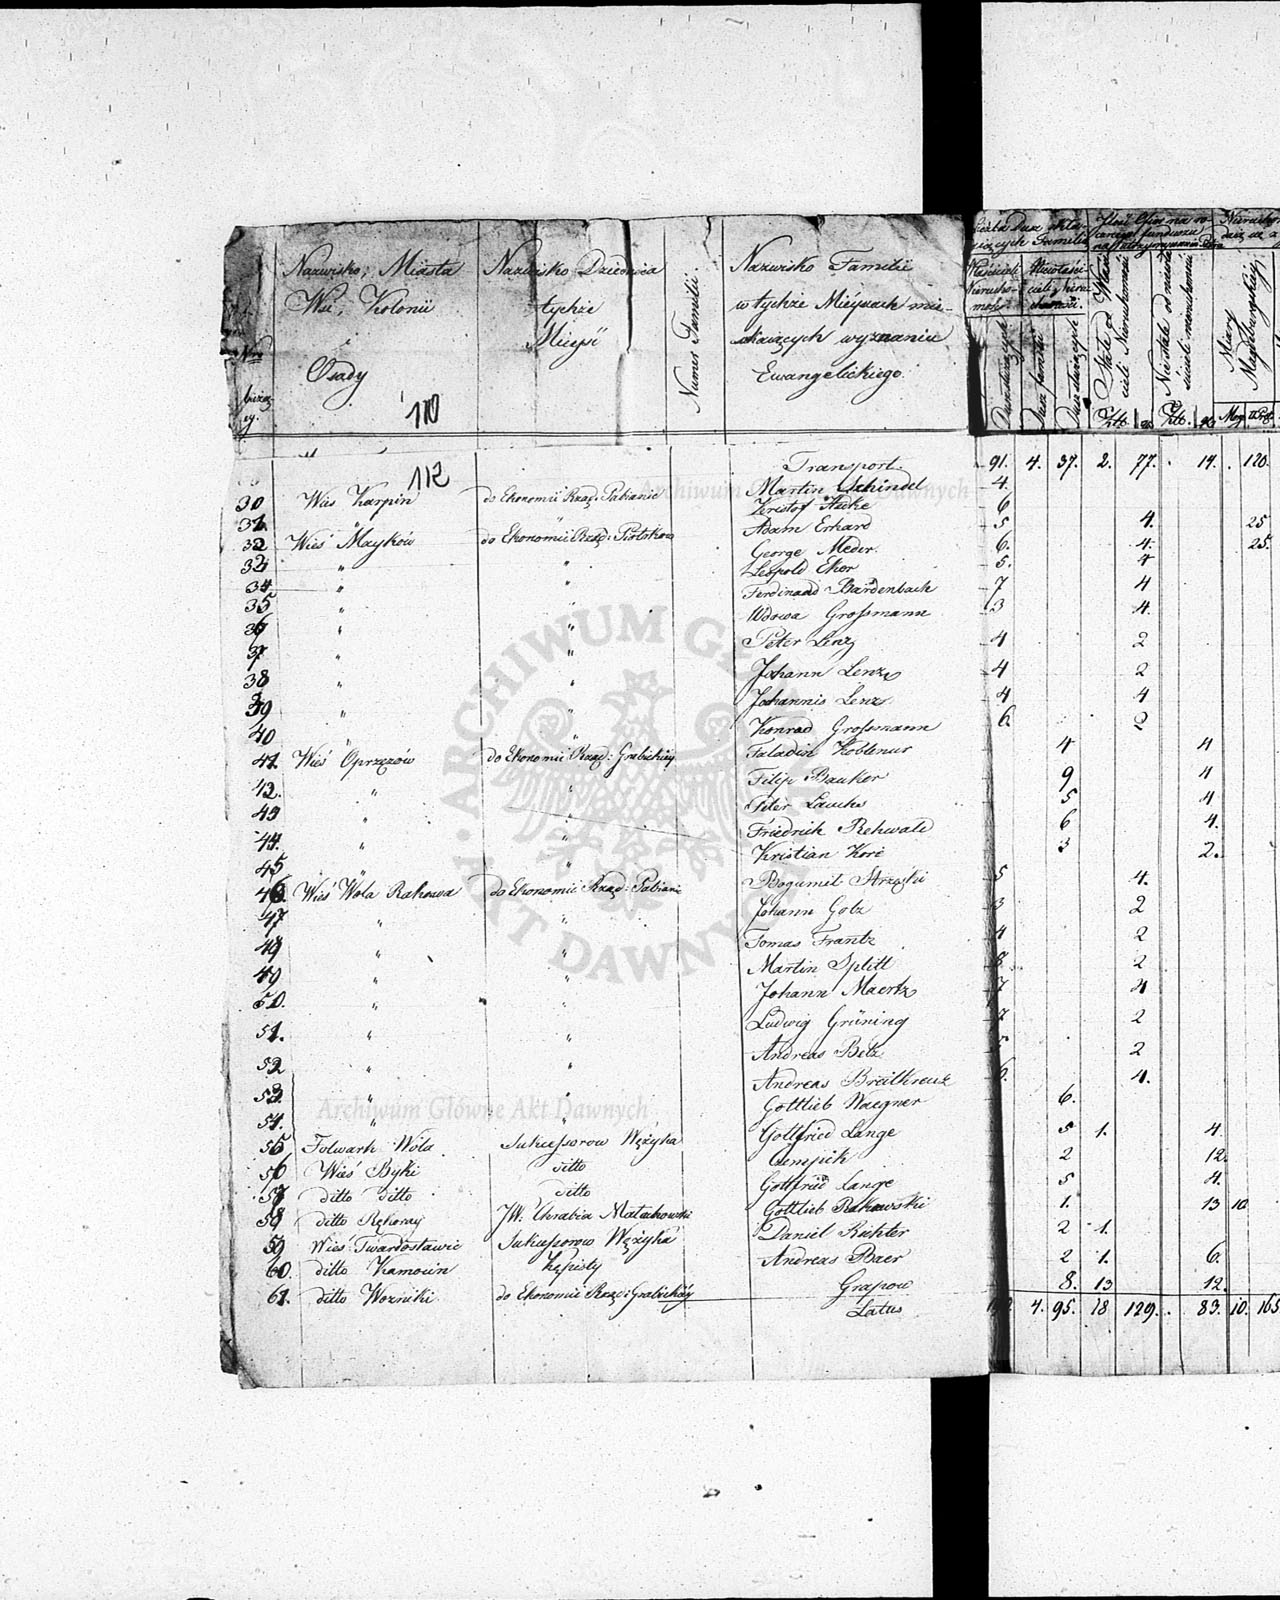 Nazwisko, Miasta
Wsi, Kolonii
Osady
Nazwisko Dziedzica
tychże
Mieysc
Numer Familii.
Nazwisko Familii
w tychże Mieyscach mie-
szkaiących wyznania
Ewangelickiego.
110
112
Transport. 91. 4. 37. 2. 77. 14. 120.
30 Wieś Karpin do Ekonomii Rząd: Pabianic Martin Schindel 4.
31 " " Kristof Hacke 6
32 Wieś Mayków do Ekonomii Rząd: Piotrkow Adam Erhard 5 4. 25
33 " " George Meder. 6. 4. 25.
" " Leopold Ekor 5. 4
34 " " Ferdinand Bardenbach 7 4
35 " " Wdowa Grossmann 3 4.
36 " " Peter Lenz 4 2
37 " " Johann Lenz 4 2
38 " " Johannis Lenz 4 4
39 " " Konrad Grossmann 6 2
40 " " Faladin Koblenur 4 4
41. Wieś Oprzężów do Ekonomii Rząd: Grabickiéy Filip Bauker 9 4
42. " " Peter Lauchs 5 4
43 " " Friedrich Rehwald 6 4.
44. " " Kristian Koré 3 2.
45 " " Bogumil Strząski 5 4.
46. Wieś Wola Rakowa do Ekonomii Rząd: Pabianic Johann Golz 3 2
47 " " Tomas Frantz 4 2
48 " " Martin Splitt 8. 2
49 " " Johann Maertz 7 4
50. " " Ludwig Grüning 7 2
51. " " Andreas Betz 5 2
52 " " Andreas Breitkreuz 6. 4.
53. " " Gottlieb Waegner 6.
54. " " Gottfried Lange 5 1. 4.
55 Folwark Wola Sukcessorow Wężyka Cempik 2 12.
56 Wieś Byki ditto Gottfried Lange 5 4.
57 ditto ditto ditto Gottlieb Rakowski 1. 13 10
58 ditto Rękoray JW: Hrabia Małachowski Daniel Richter 2 1.
59 Wieś Twardosławice Sukcessorow Wężyka Andreas Baer 2 1. 6.
60. ditto Kamocin Kępisty Grapow 8. 13 12.
61. ditto Wozniki do Ekonomii Rząd: Grabickiéy Latus 4. 95. 18 129. 83. 10. 165
Archiwum Główne Akt Dawnych
ARCHIWUM GŁÓWNE AKT DAWNYCH